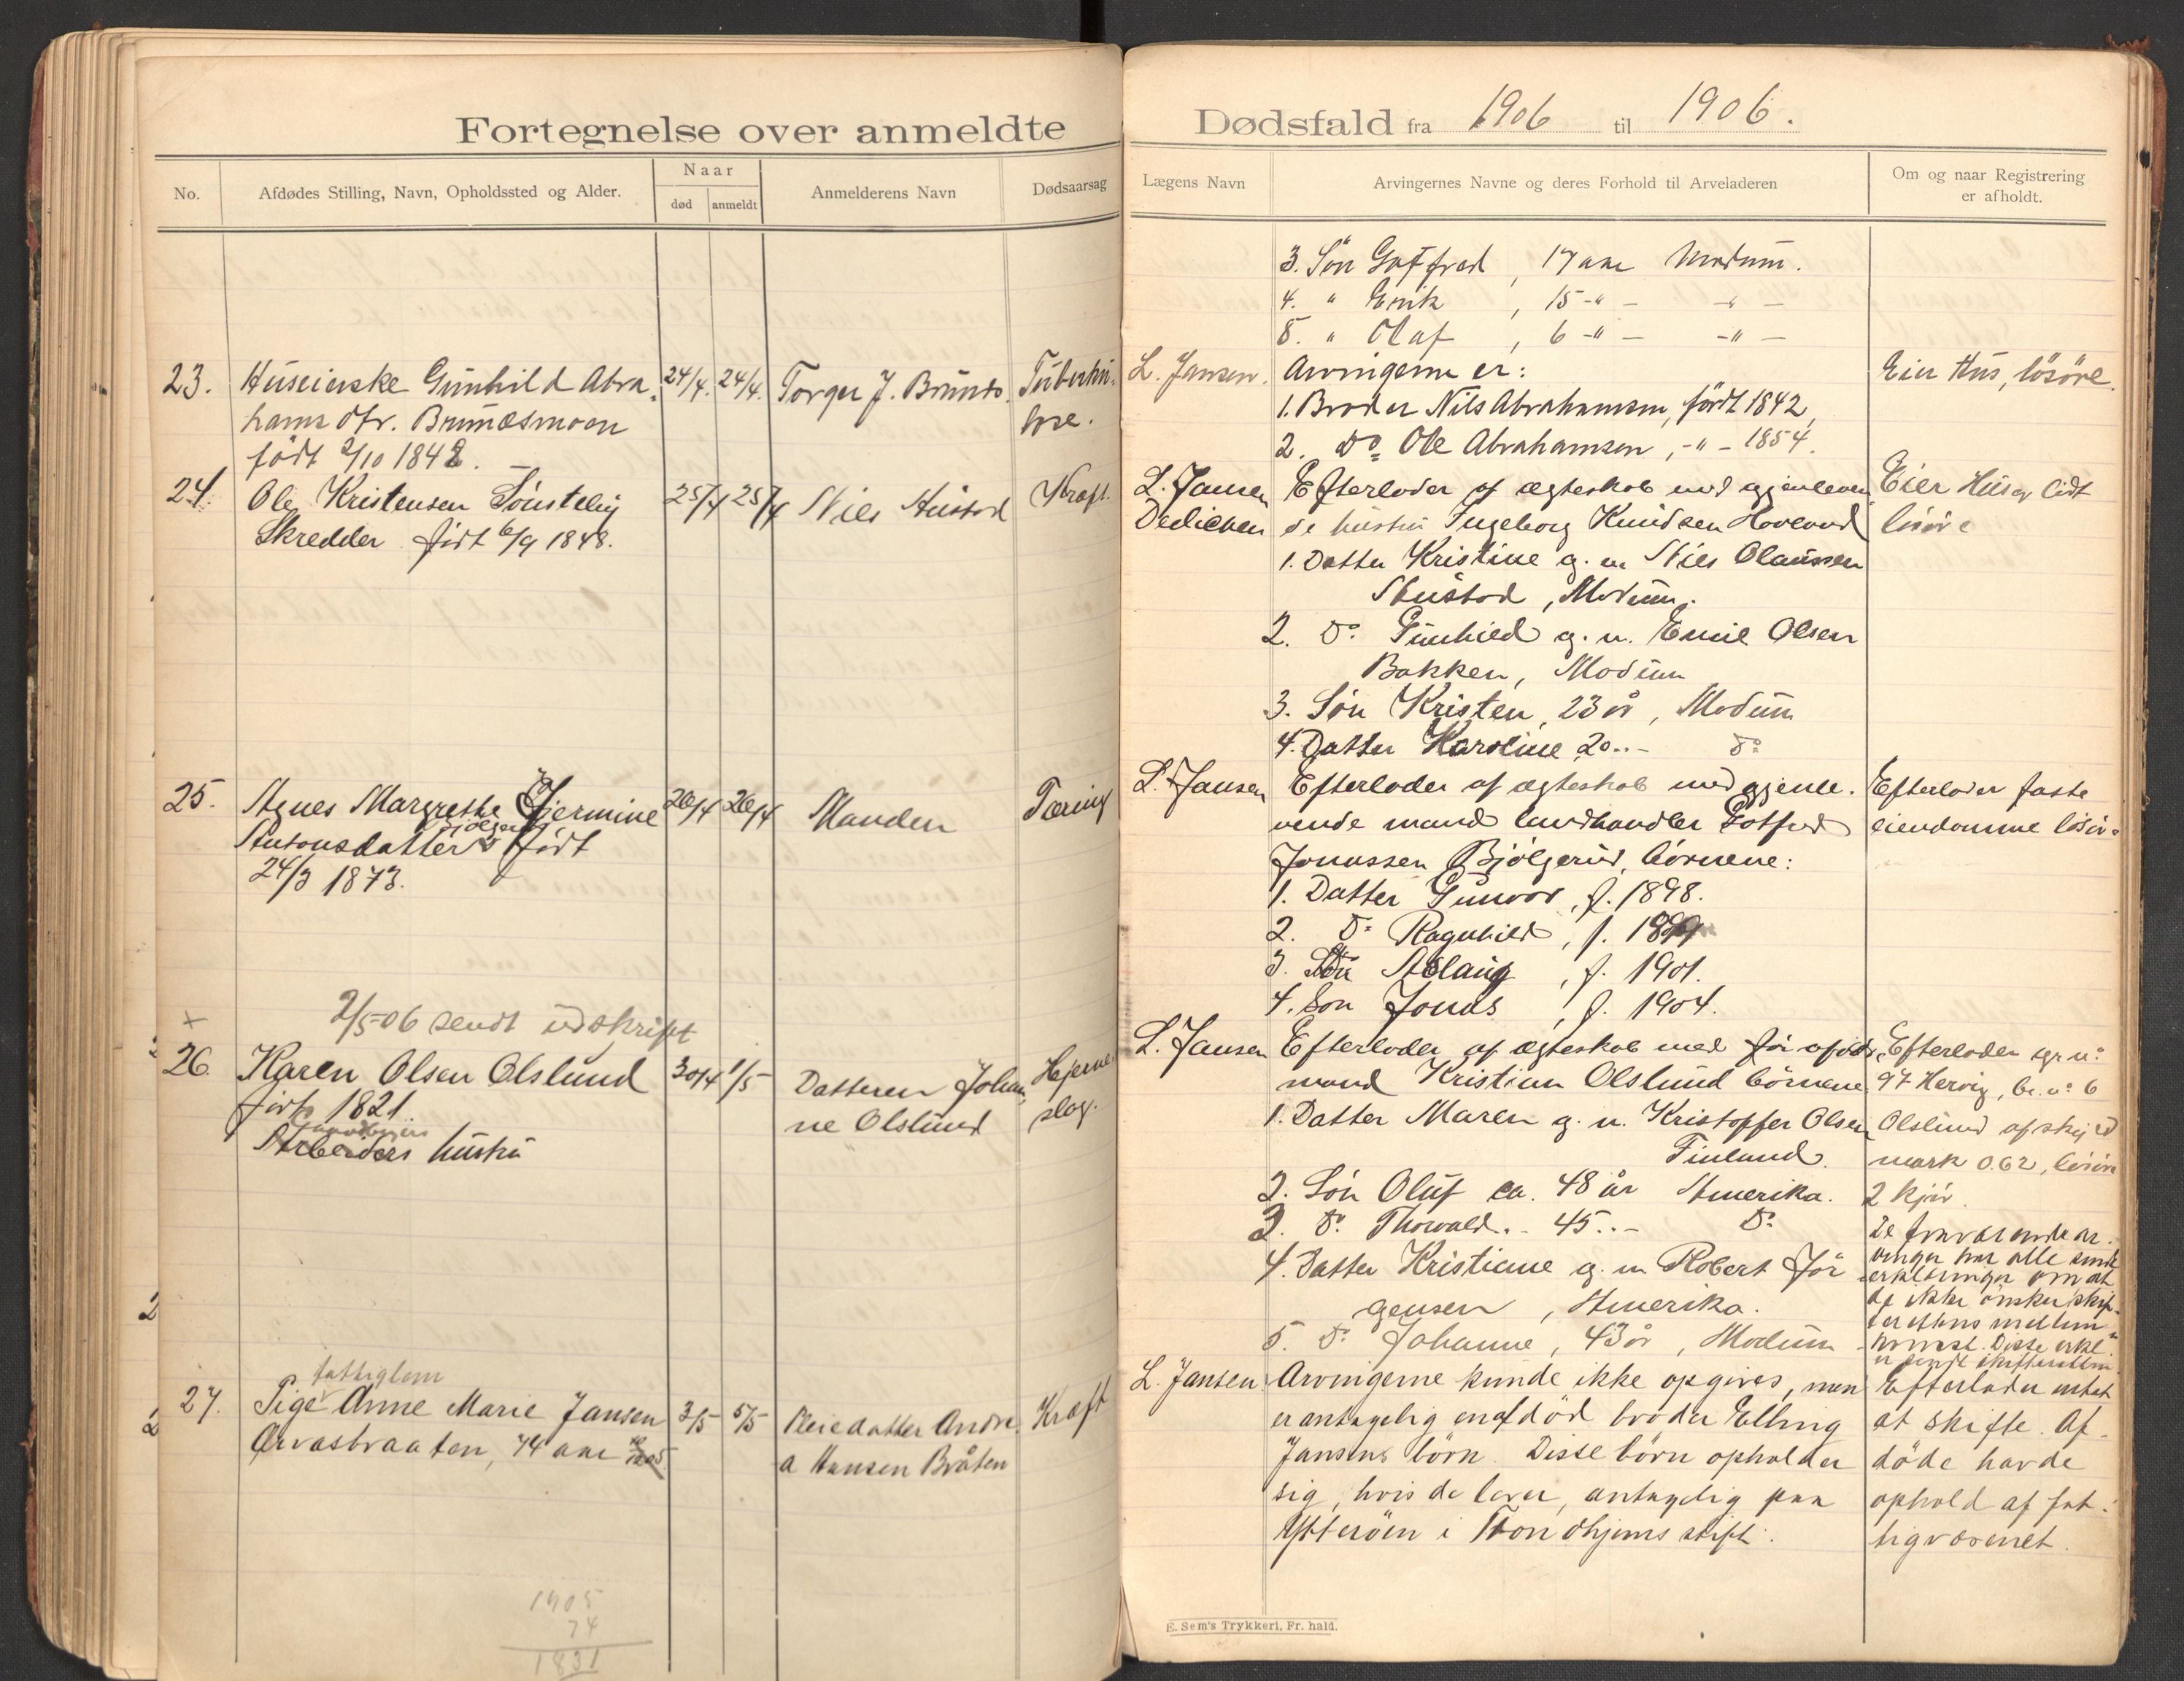 Fortegnelse over anmeldte
No.
Afdødes Stilling, Navn, Opholdssted og Alder.
Naar
død
anmeldt
Anmelderens Navn
Dødsaarsag
23.
Huseierske Gunhild Abra
hams dtr. Brunæsmoen
født 2/10 1842.
24/4.
24/4.
Torger J. Brunæs.
Tuberku-
lose.
24.
Ole Kristensen Sönsteby
Skredder født 6/9 1848.
25/4
25/4
Nils
Kræft.
25.
Agnes Margrethe Hjermine
Bjölgerud
Antonsdatter født
24/3 1873.
26/4
26/4
Manden
Tæring
2/5 06 sendt udskrift
26.
Karen Olsen Olslund
født 1821.
Arbeiders hustru
30/4
1/5
Datteren Johan
ne Olslund
Hjerne
slag.
fattiglem
27.
Pige Anne Marie Jansen
74 aar
3/5
5/5
Pleiedatter Andre
a Hansen Bråten
Kræft
1905
74
1831
Dødsfald fra 1906 til 1906.
Lægens Navn
Arvingernes Navne og deres Forhold til Arveladeren
Om og naar Registrering
er afholdt.
3. Sön Gotfred, 17 aar Modum.
4. " Erik, 15 -"- -"-
5. " Olaf, 6 -"- -"-
L. Jansen.
Arvingerne er:
1. Broder Nils Abrahamsen, født 1842,
2. Do Ole Abrahamsen, -"- 1854.
Eier Hus, lösöre.
L. Jansen
Efterlader af ægteskab med gjenleven
de hustru Ingeborg Knudsen
1. Datter Kristine g. m. Nils Olaussen
, Modum.
2. Do. Gunhild g. m. Emil Olsen
Bakken, Modum
3. Sön Kristen, 23 år, Modum
4. Datter Karoline, 20 .. - Do
Eier Hus og lidt
lösöre
L. Jansen
Efterlader af ægteskab med gjenle-
vende mand landhandler Gotfred
Jonassen Bjölgerud, börnene:
1. Datter Gunvor, f. 1898.
2. Do Ragnhild, f. 1899
3. Aslaug, f. 1901.
4. Sön Jonas, f. 1904.
Efterlader faste
eiendomme lösöre
L. Jansen
Efterlader af ægteskab med før afdöd
mand Kristian Olslund börnene
1. Datter Maren g. m. Kristoffer Olsen
Finland.
2. Sön Oluf ca. 48 år Amerika.
3. Do. Thorvald .. 45 .. - Do
4. Datter Kristiane g. m. Robert Jör
gensen, Amerika.
5. Do Johanne, 43 år, Modum
Efterlader gr no
97 br. no 6
Olslund af skyld
mark 0.62, lösöre
2 kjör
De fraværende ar-
vinger har alle sendt
erklæringer om at
de ikke önsker skif-
L. Jansen
Arvingerne kunde ikke opgives, men
er antagelig en afdöd broder Elling
Jansens börn. Disse börn opholder
sig, hvis de lever, antagelig paa
Ytteröen i Trondhjems stift.
Efterlader intet
at skifte. Af-
døde havde
ophold af fat-
tigvæsenet.
E. Sem's Trykkeri, Fr.hald.